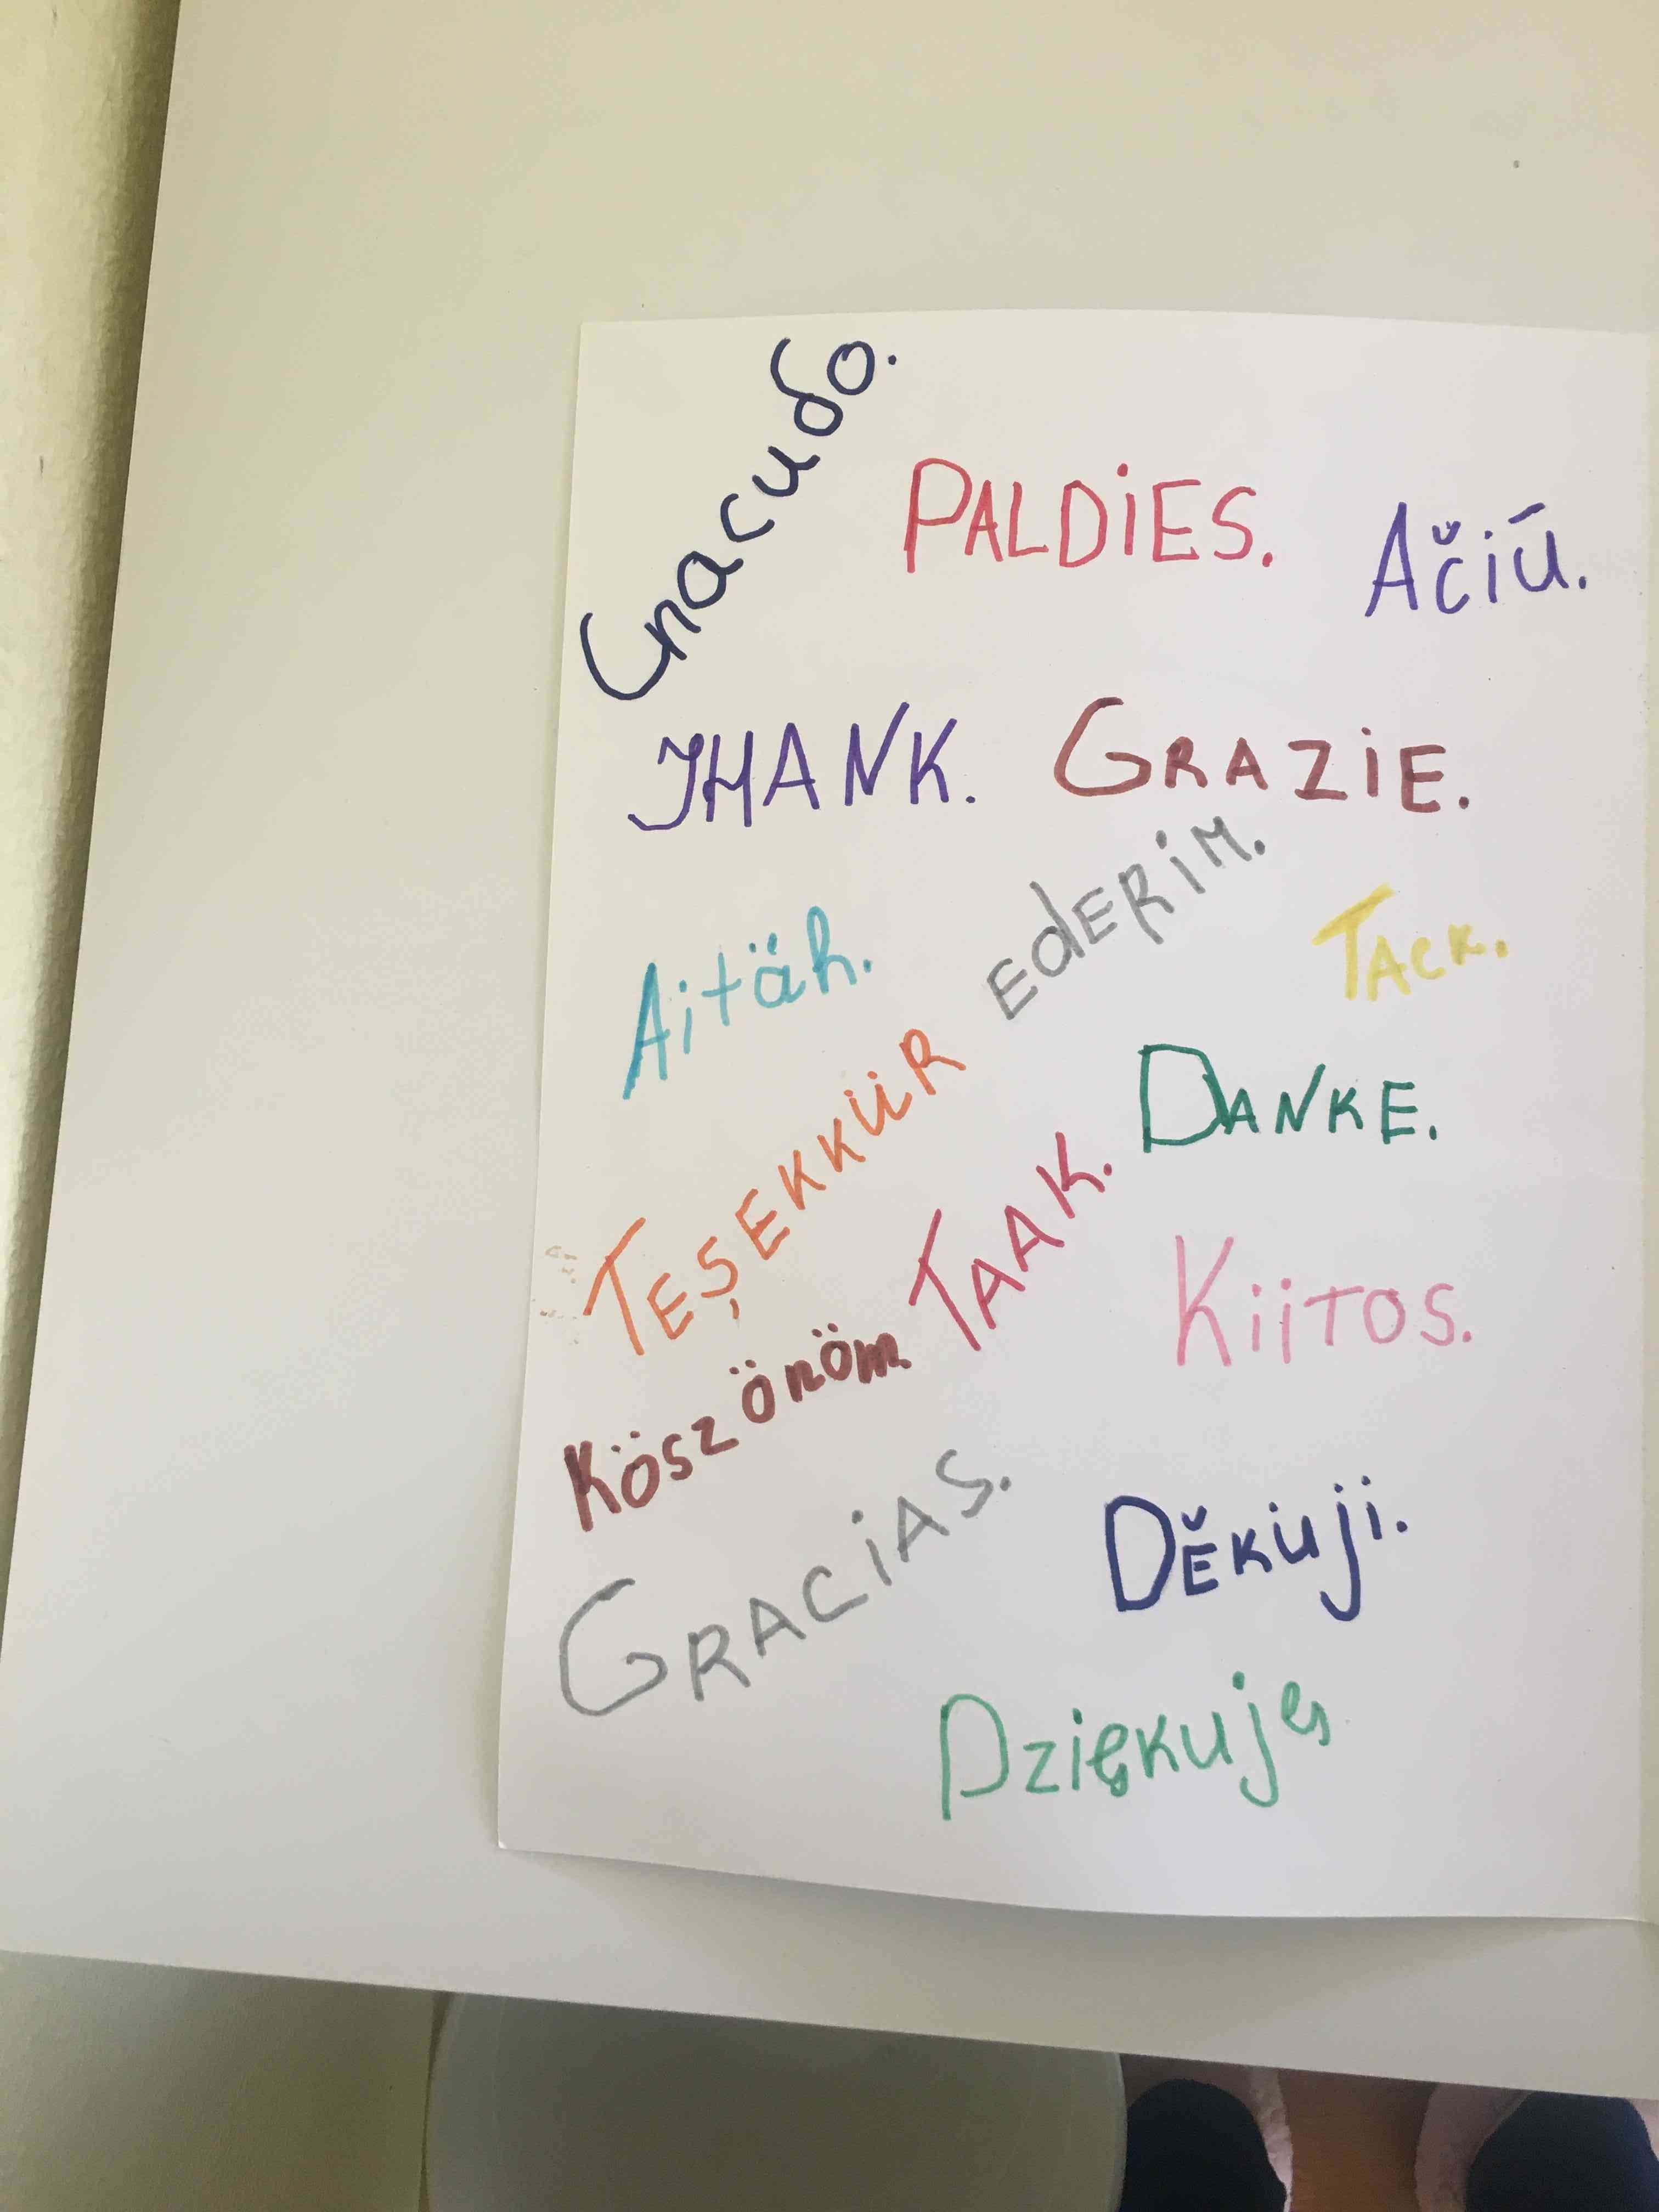 Спасибо.
PALDiES.
Ačiū.
THANK.
GRAZiE.
Aitäh.
TEŞEKKÜR EdERiM.
TACK.
DANKE.
TAAK.
KiiTOS.
Köszönöm
GRACiAS.
DĚKUji.
Dziękuję